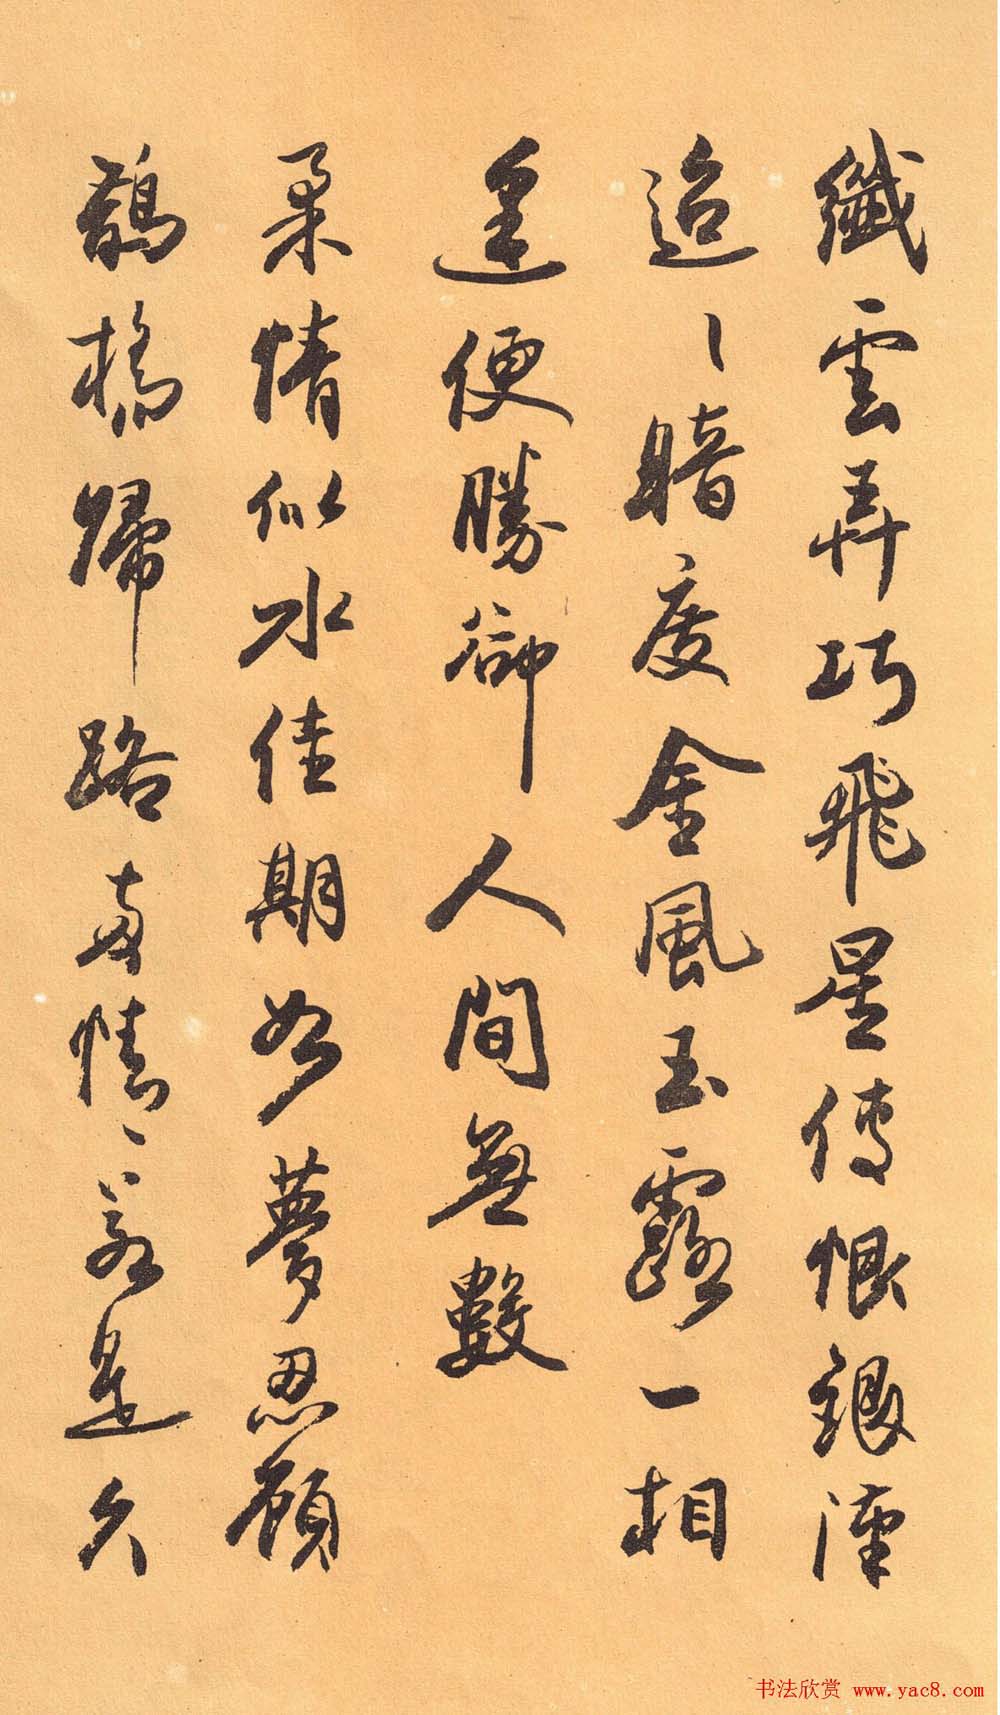 纖雲弄巧飛星傳恨銀漢
迢〻暗度金風玉露一相
逢便勝卻人間無數
柔情似水佳期如夢忍顧
鵲橋歸路兩情若是久
书法欣赏 www.yac8.com